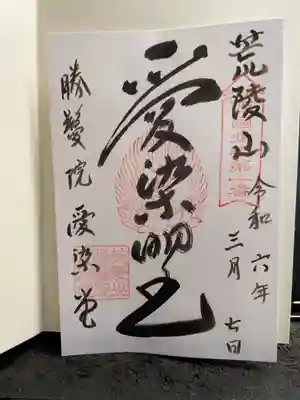 荒陵山
令和六年
三月七日
愛染明王
勝鬘院 愛染堂